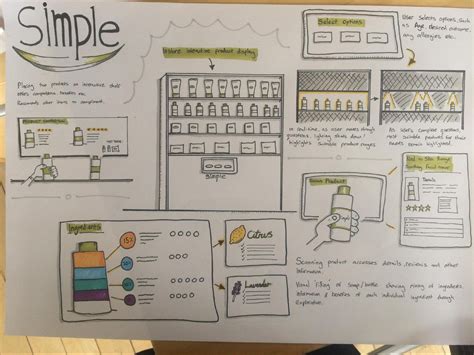 Simple
Placing two products on interactive shelf
offers comparisons benefits etc.
Recommends other items to compliment.
Product Comparison
In store interactive product display
simple
Select options
User selects options, such
as Age, desired outcome,
any allergies etc.
In real-time, as user moves through
questions, lighting dims down /
highlights suitable product ranges
As User completes questions,
most suitable products for their
needs remain highlighted.
Scan Product
Kind to Skin Range
Soothing facial toner
Details
Ingredients
15%
Citrus
Lavender
Scanning product accesses details, reviews and other
information.
Visual filling of soap/bottle showing mixing of ingredients
Information & benefits of each individual ingredient through
exploration.